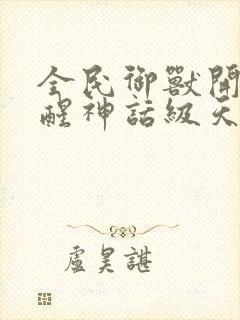 全民御獸開
醒神話級天
盧昊諶